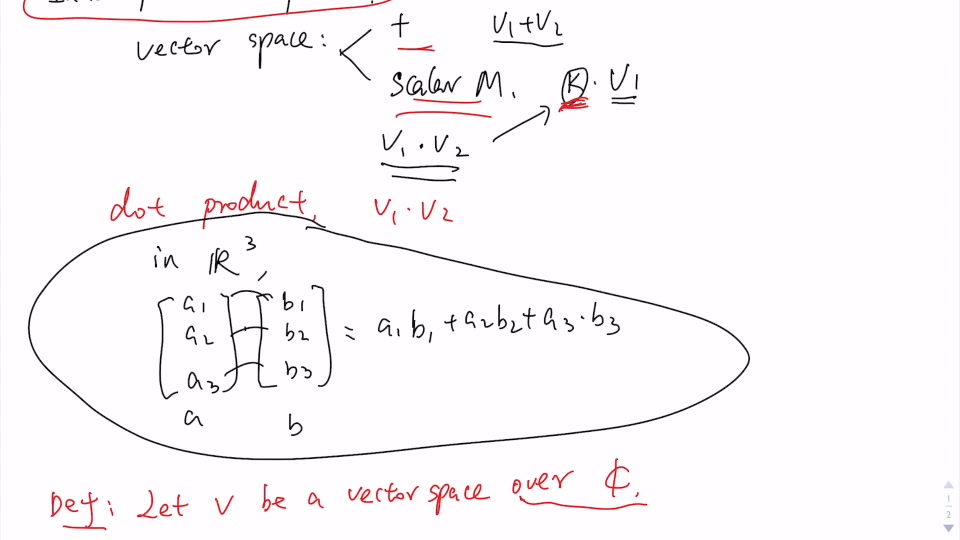 vector space: + V₁+V₂
scalar M. K · V₁
V₁ · V₂
dot product, V₁ · V₂
in ℝ³,
[a₁ a₂ a₃] [b₁ b₂ b₃] = a₁b₁ + a₂b₂ + a₃·b₃
a b
Def: Let V be a vector space over ℂ.
1
2